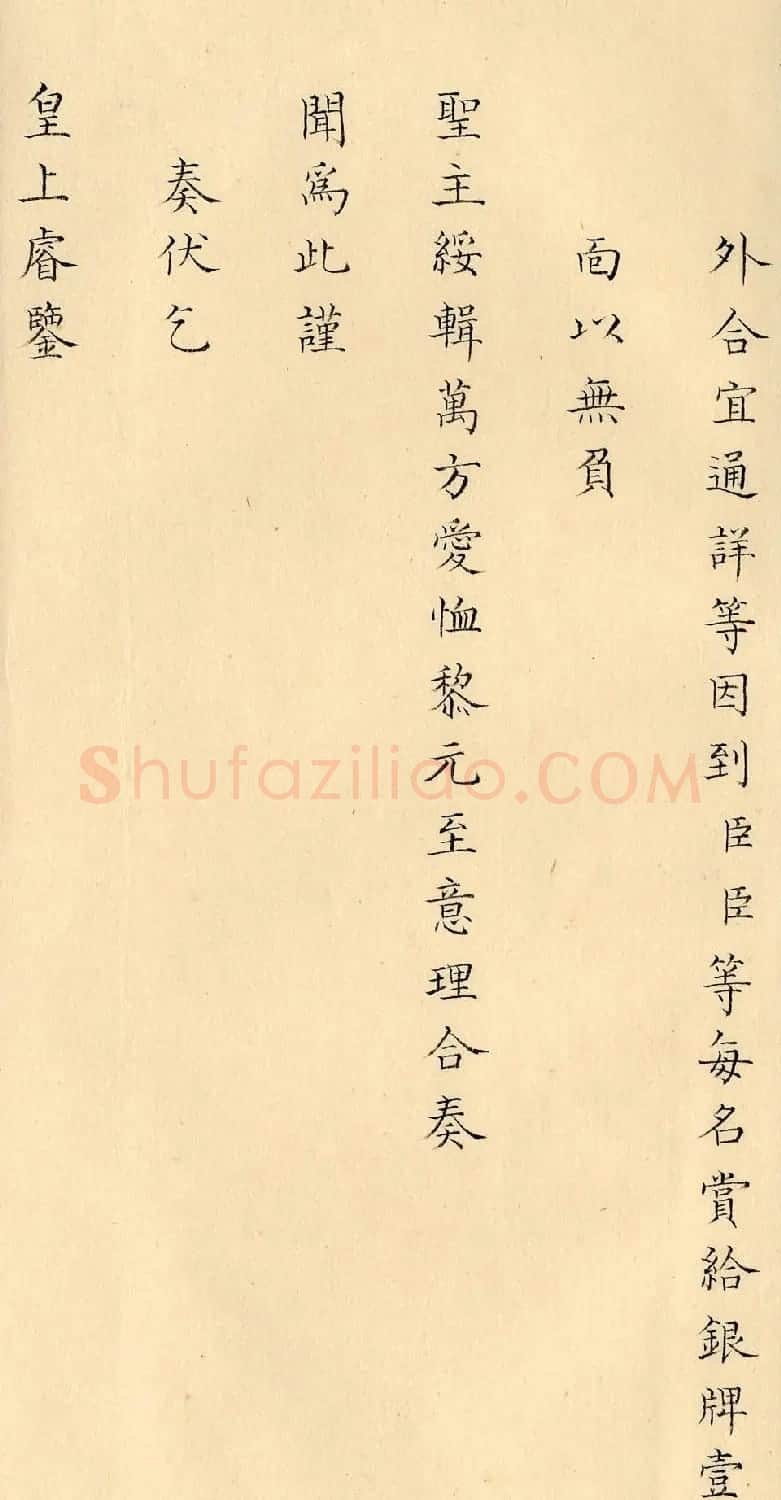 外合宜通詳等因到臣臣等每名賞給銀牌壹
面以無負
聖主綏輯萬方愛恤黎元至意理合奏
聞為此謹
奏伏乞
皇上睿鑒
Shufaziliao.COM